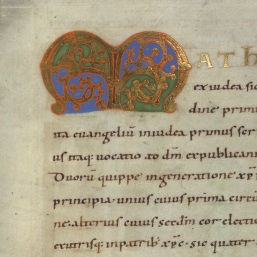 MATH
ex iudea sic
dine primu
ita euangeliū in iudea primus scr
us itaq; uocatio ad dm̄ ex publicani
Duorū quippe in generatione xp̄i
principia unius cuius prima circū
ne: alterius cuius scdm̄ cor electio
ex utrisq; in patrib' xp̄c. sic quater